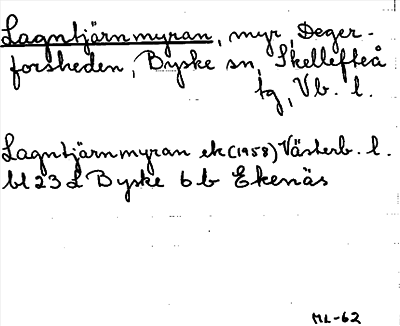 Lagntjärnmyran, myr, Deger-
forsheden, Byske sn, Skellefteå
tg, Vb. l.
Lagntjärnmyran ek (1958) Västerb. l.
bl 23 L Byske 6 b Ekenäs
ML-62